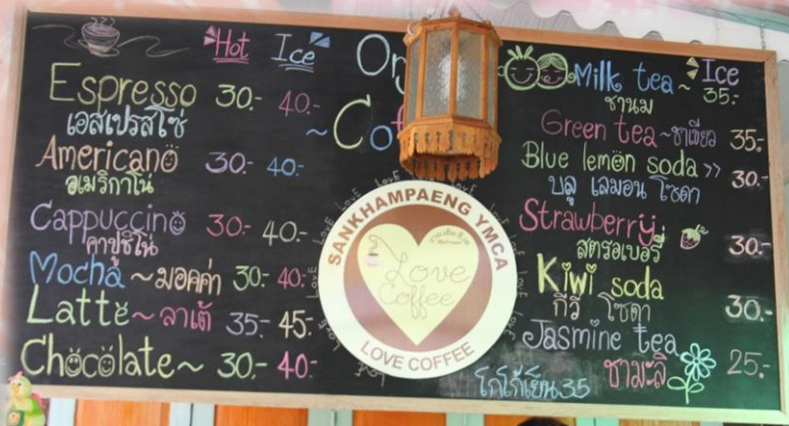 Hot Ice
Espresso 30.- 40.-
เอสเปรสโซ่
Americano 30.- 40.-
อเมริกาโน่
Cappuccino 30.- 40.-
คาปูชิโน่
Mocha ~ มอคค่า 30.- 40.-
Latte ~ ลาเต้ 35.- 45.-
Chocolate ~ 30.- 40.-
SANKHAMPAENG YMCA
Love
Coffee
LOVE COFFEE
Ice
Milk tea ~ 35.-
ชานม
Green tea ~ ชาเขียว 35.-
Blue lemon soda >> 30.-
บลู เลมอน โซดา
Strawberry 30.-
สตรอเบอรี่
Kiwi soda 30.-
กีวี โซดา
Jasmine tea 25.-
ชามะลิ
โกโก้เย็น 35